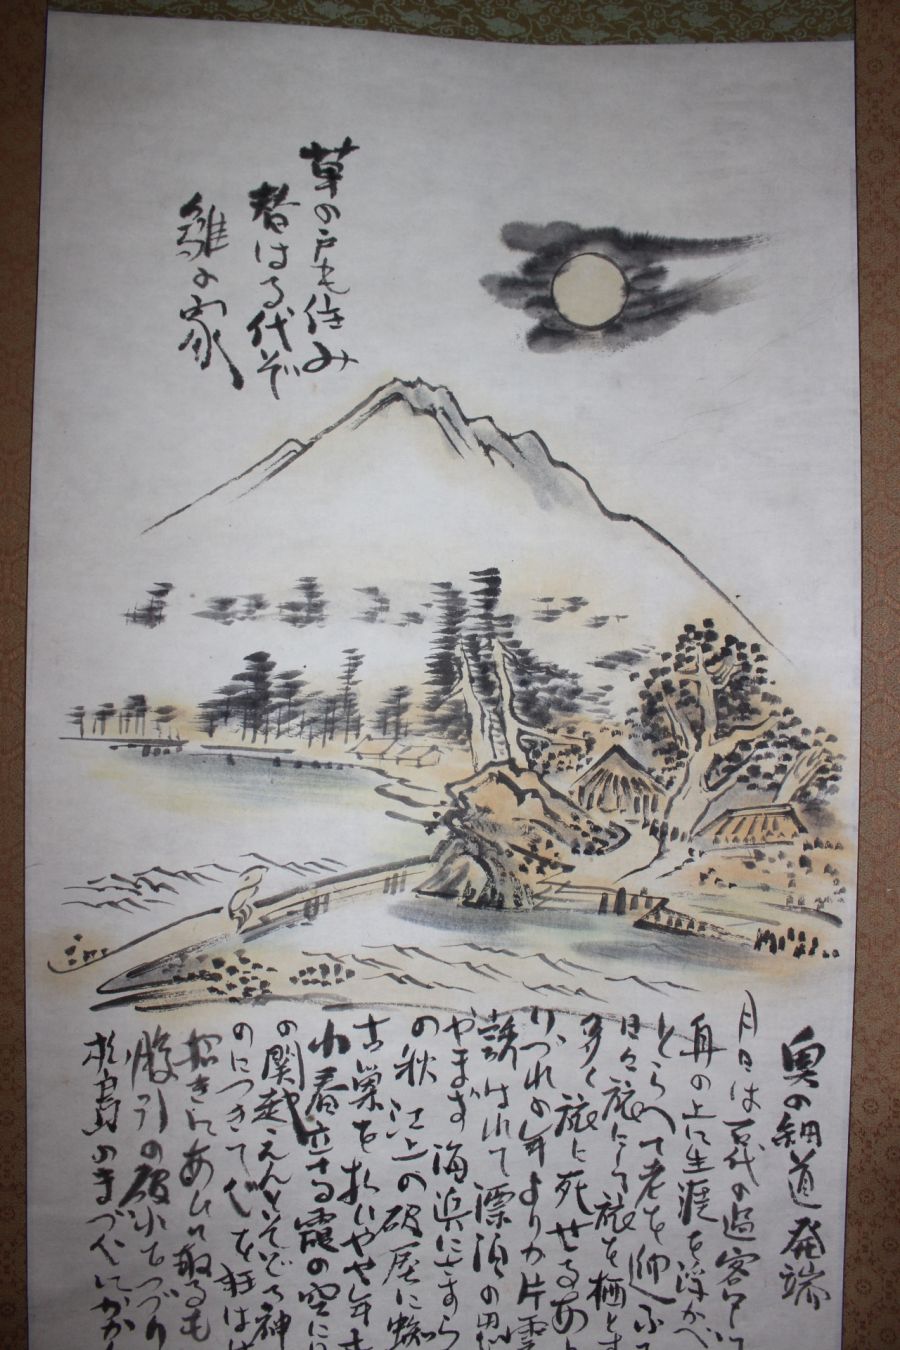 草の戸も住み
替はる代ぞ
雛の家
奥の細道 発端
月日は百代の過客にして
舟の上に生涯を浮かべ
とらへて老を迎ふ
日々旅にして旅を栖とす
多く旅に死せるあり
いづれの年よりか片雲
誘はれて漂泊の思
やまず海浜にさすら
の秋江上の破屋に蜘
古巣を払いやや年も
春立てる霞の空に
の関越えんとそぞろ神
のにつきて心を狂はせ
招きにあひて取るも
股引の破れをつづり
松島の